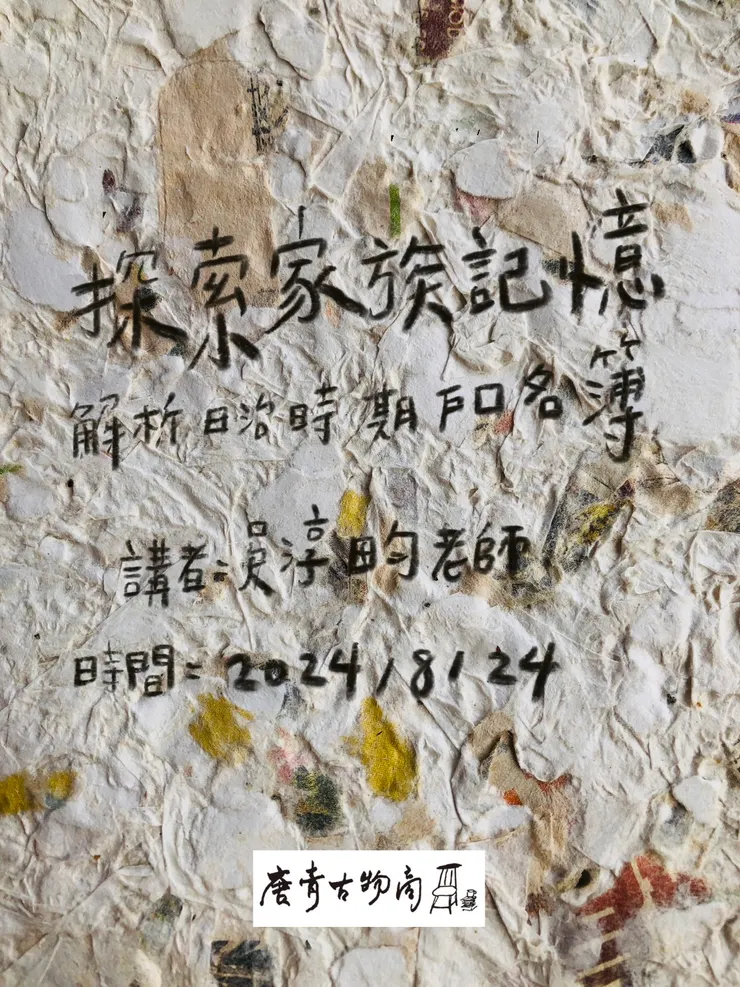 探索家族記憶
解析日治時期戶口名簿
講者:吳淳畇老師
時間:2024/8/24
唐青古物商